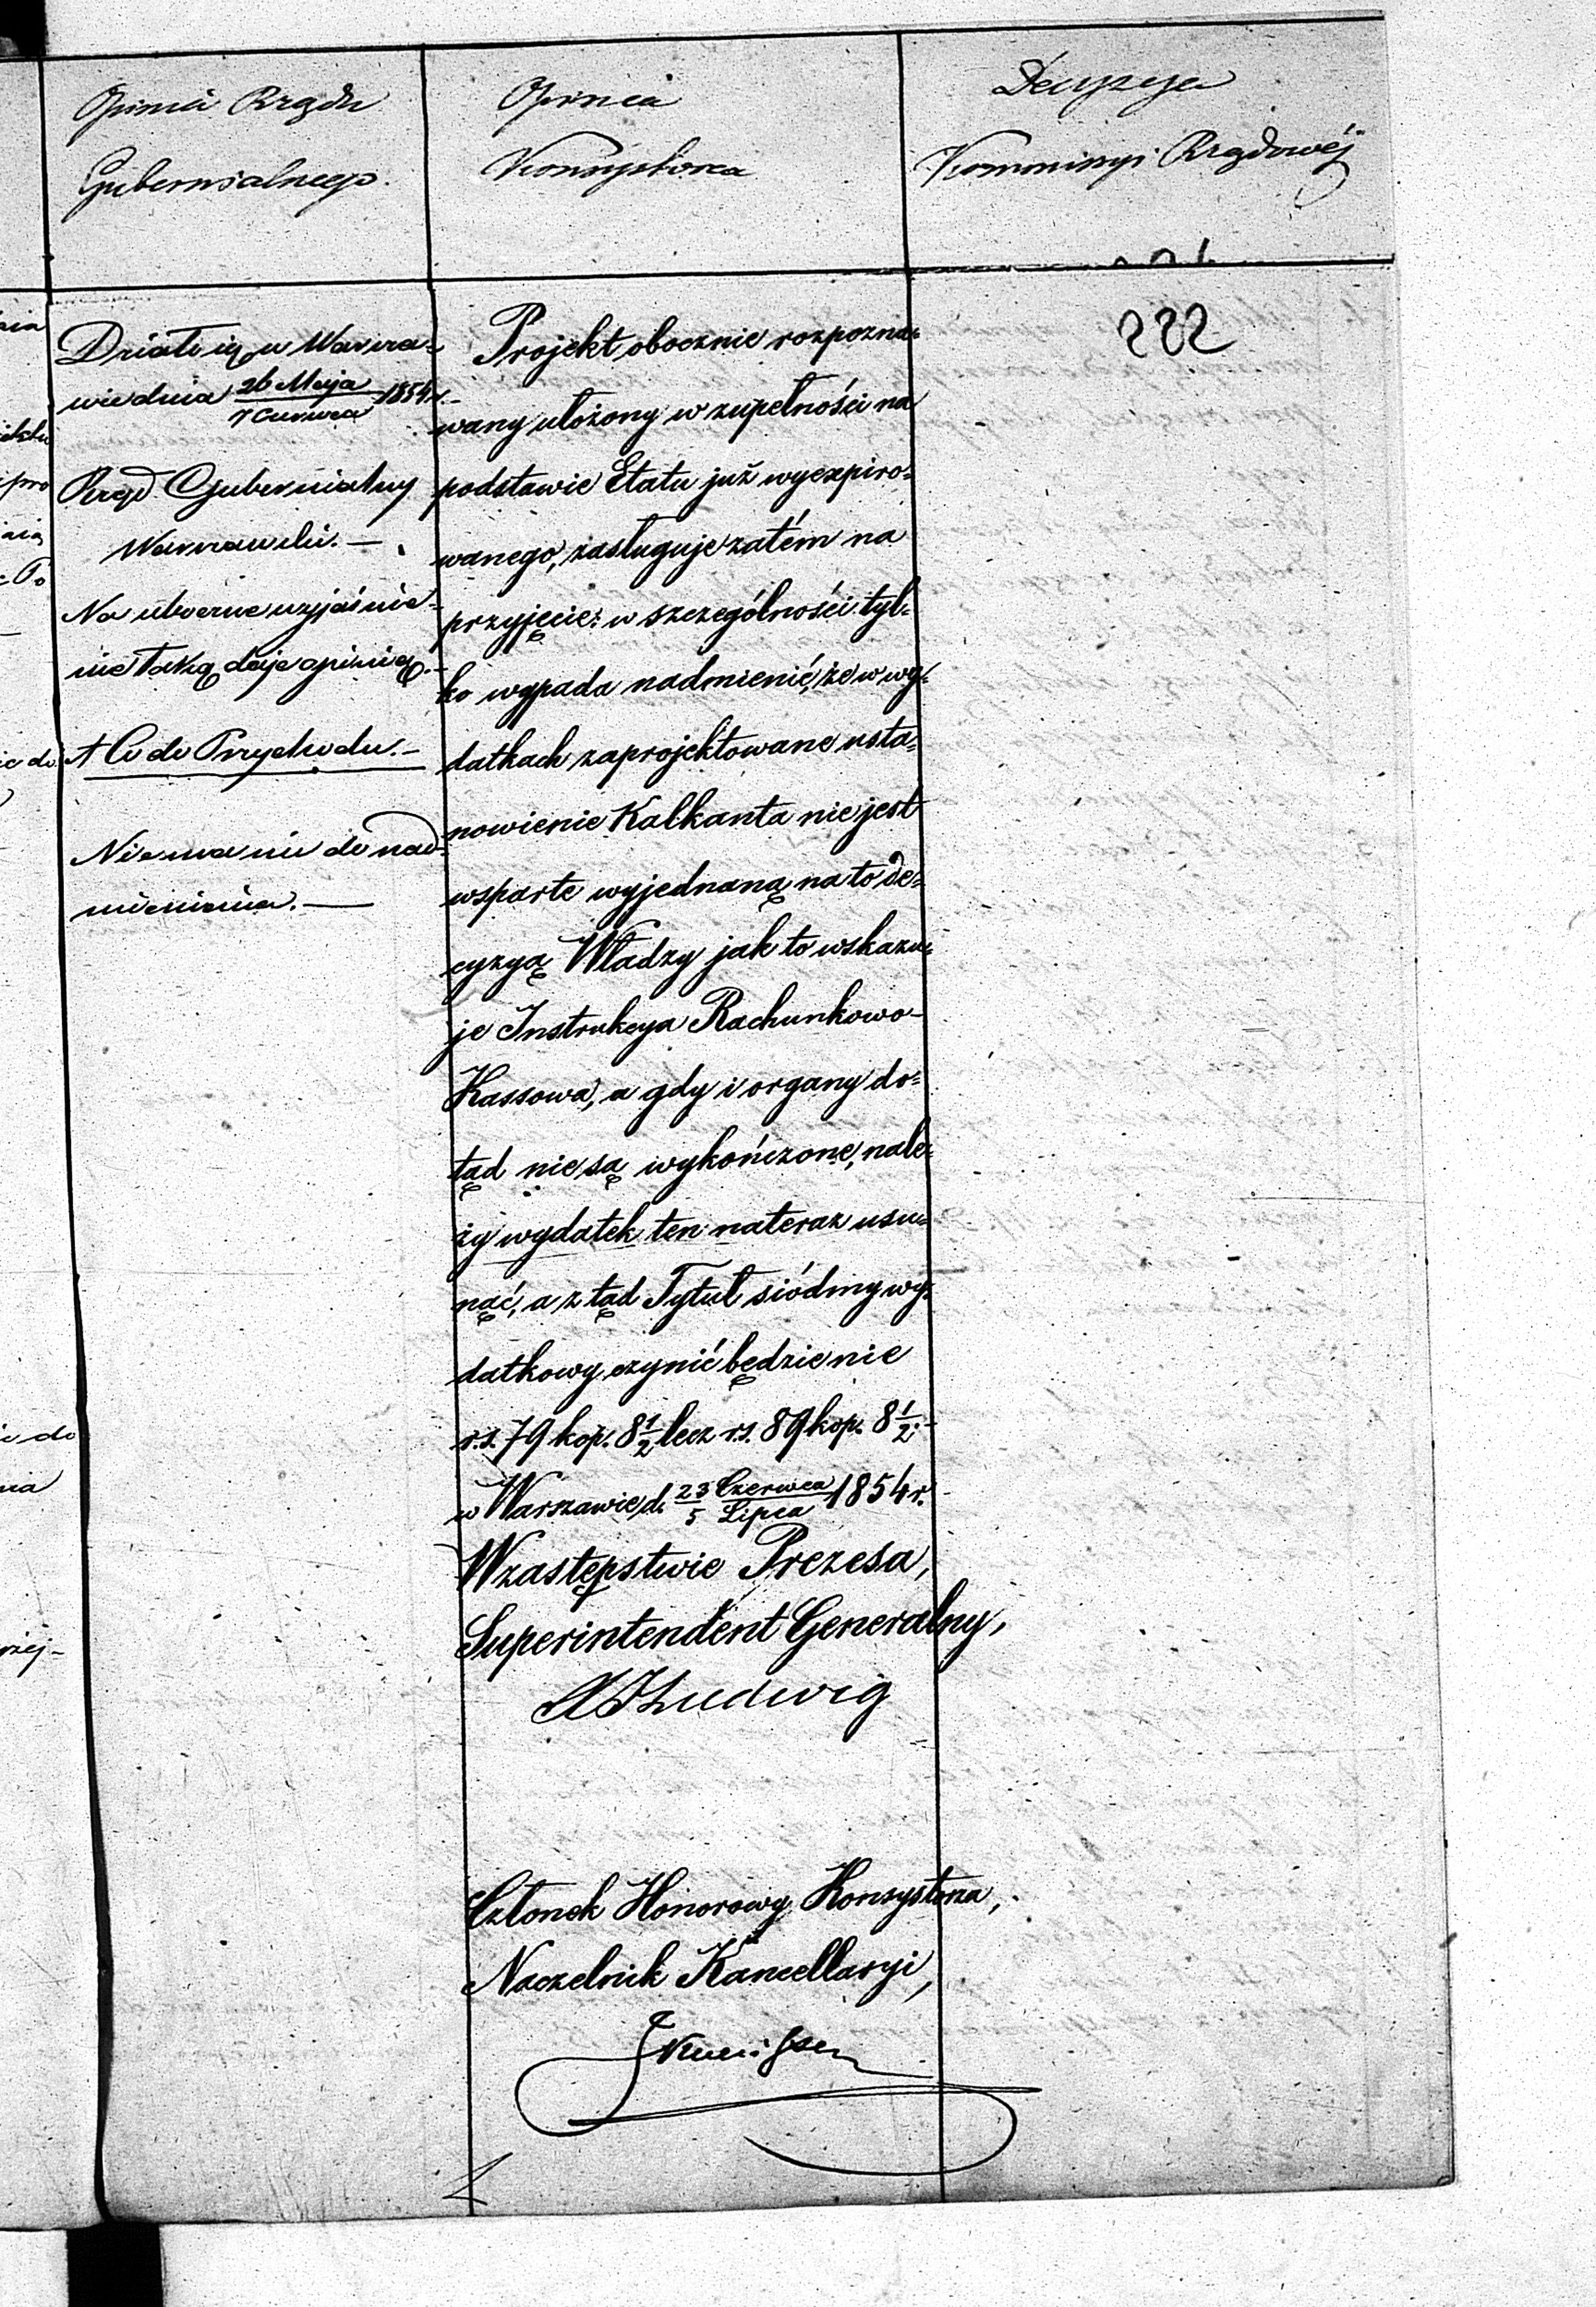 Opinia Rządu
Gubernialnego.
Opinia
Konsystorza
Decyzya
Kommissyi Rządowéj
222
Działo się w Warsza=
wie dnia 26 Maja / 7 Czerwca 1854 r.
Rząd Gubernialny
Warszawski. —
Na uboczne wyjaśnie=
nie taką daje opinię. —
A Co do Przychodu. —
Niema nic do nad=
mienienia. —
Projekt obocznie rozpozna=
wany ułożony w zupełności na
podstawie Etatu już wyexpiro=
wanego, zasługuje zatém na
przyjęcie: w szczególności tyl=
ko wypada nadmienić, że w wy=
datkach zaprojektowane usta=
nowienie Kalkanta nie jest
wsparte wyjednaną na to de=
cyzyą Władzy jak to wskazu=
je Instrukcya Rachunkowo-
Kassowa, a gdy i organy do=
tąd nie są wykończone, nale=
ży wydatek ten nateraz usu=
nąć, a z tąd Tytuł siódmy wy=
datkowy czynić będzie nie
r.s. 79 kop. 8 1/2 lecz r.s. 89 kop. 8 1/2. —
w Warszawie d. 23 Czerwca / 5 Lipca 1854 r.
W zastępstwie Prezesa,
Superintendent Generalny,
Ludwig
Członek Honorowy Konsystorza,
Naczelnik Kancellaryi,